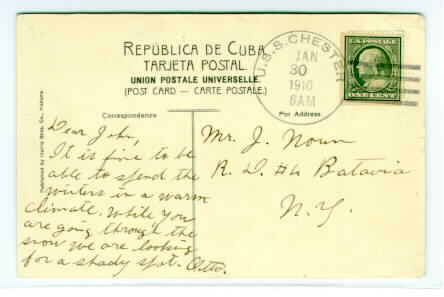 REPÚBLICA DE CUBA
TARJETA POSTAL
UNION POSTALE UNIVERSELLE
(POST CARD — CARTE POSTALE)
U.S.S. CHESTER
JAN
30
1910
6AM
U.S. POSTAGE
ONE CENT
Correspondence
For Address
Dear John,
It is fine to be
able to spend the
winters in a warm
climate. While you
are going through the
snow we are looking
for a shady spot. Otto.
Mr. J. Noun
R. D. #4 Batavia
N. Y.